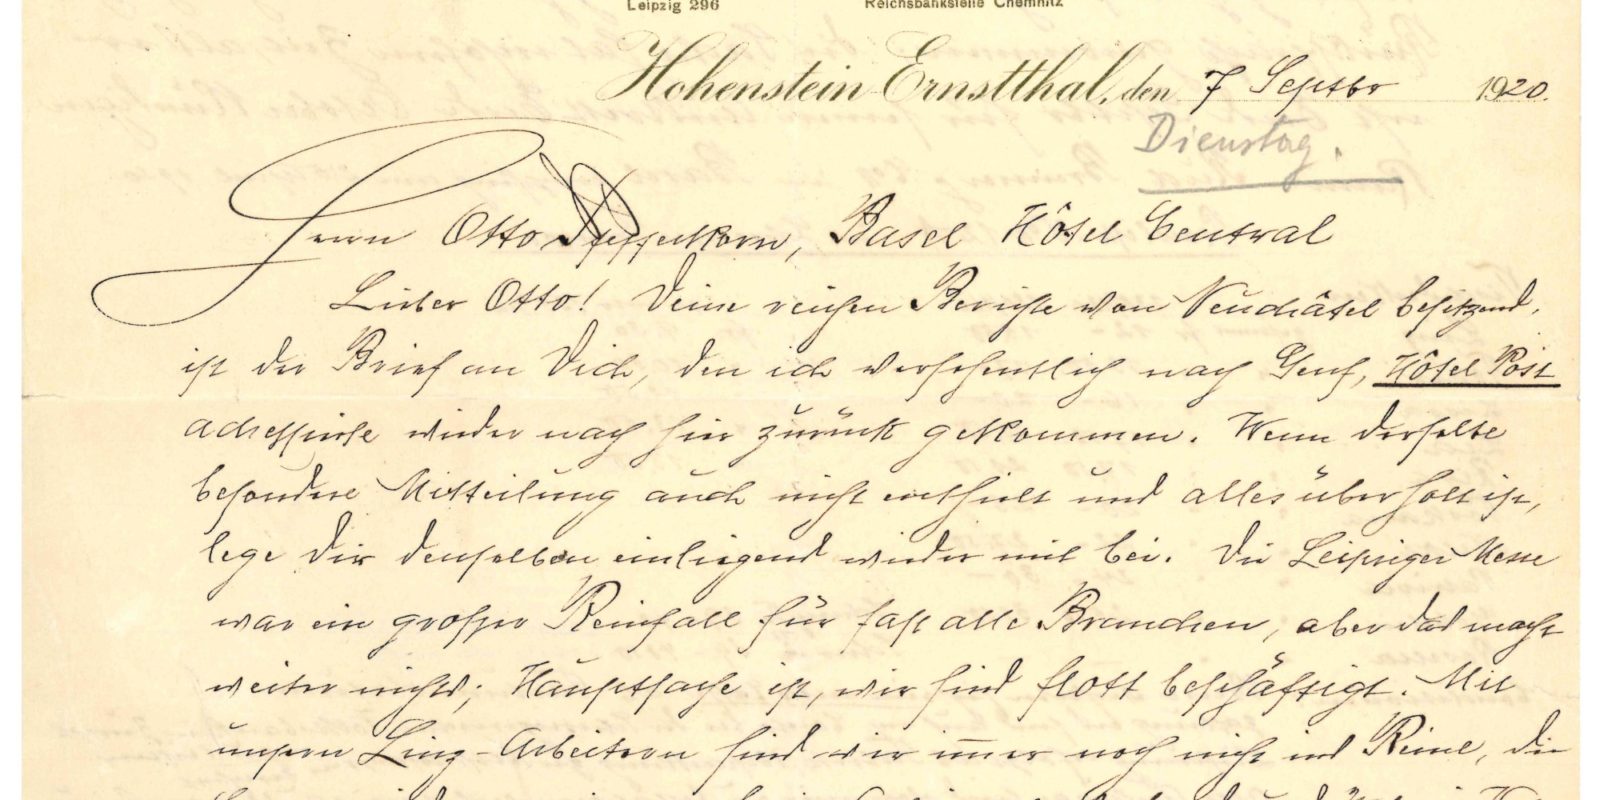 Leipzig 296 Reichsbankstelle Chemnitz
Hohenstein-Ernstthal, den 7 Septbr 1920.
Dienstag.
Herrn Otto Pfefferkorn, Basel Hôtel Central
Lieber Otto! Deine reichen Berichte von Neuchâtel besitzend,
ist der Brief an Dich, den ich versehentlich nach Genf, Hôtel Post
adressierte wieder nach hier zurück gekommen. Wenn derselbe
besondere Mitteilung auch nicht enthielt und alles überholt ist,
lege Dir denselben einliegend wieder mit bei. Die Leipziger Messe
war ein großer Reinfall für fast alle Branchen, aber das macht
weiter nichts; Hauptsache ist, wir sind flott beschäftigt. Mit
unsern Ling-Arbeitern sind wir immer noch nicht ins Reine, die